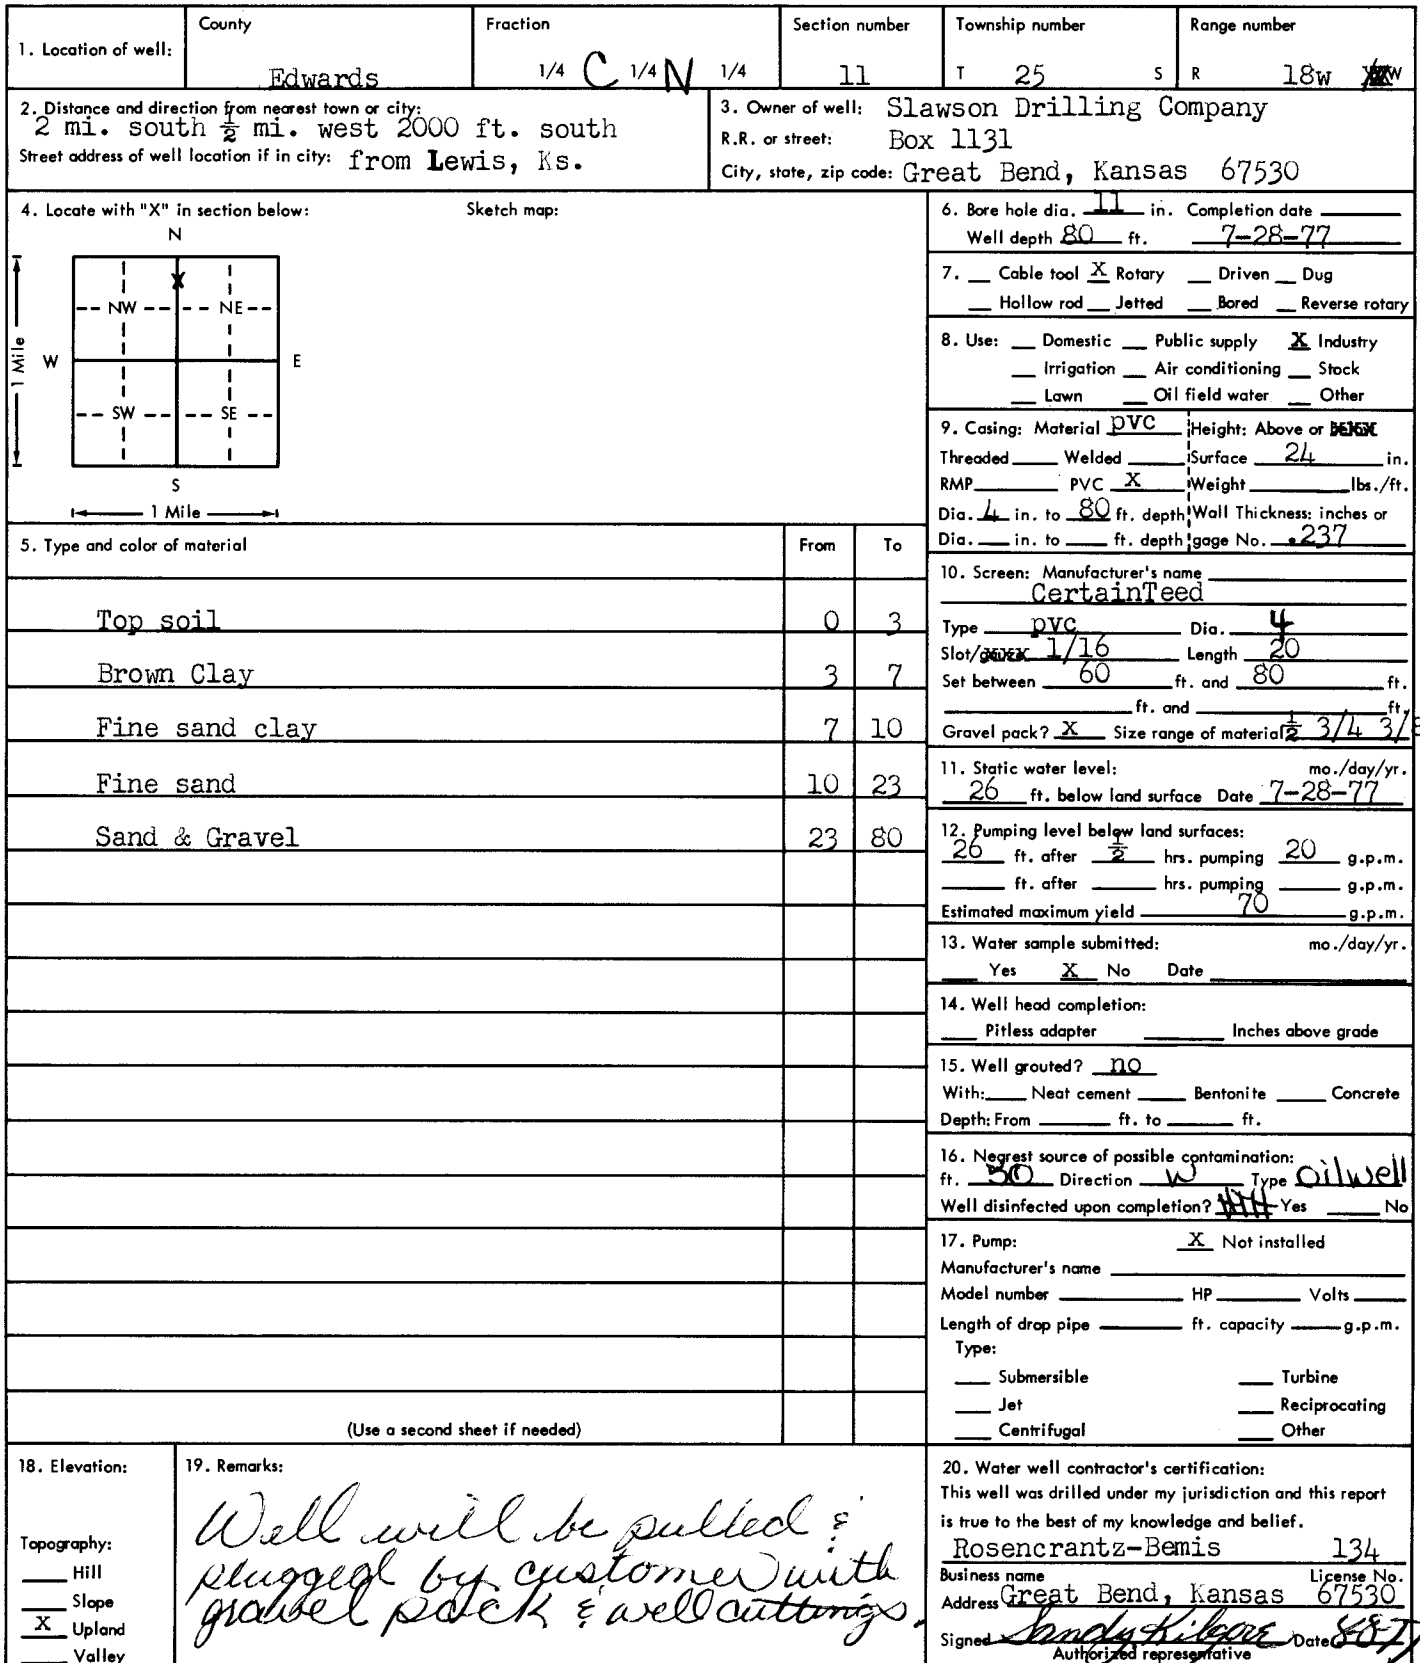 1. Location of well:
County
Edwards
Fraction
1/4 C 1/4 N 1/4
Section number
11
Township number
T 25 S
Range number
R 18w W
2. Distance and direction from nearest town or city:
2 mi. south ½ mi. west 2000 ft. south
Street address of well location if in city: from Lewis, Ks.
3. Owner of well: Slawson Drilling Company
R.R. or street: Box 1131
City, state, zip code: Great Bend, Kansas 67530
4. Locate with "X" in section below:
Sketch map:
N
X
NW NE
W E
1 Mile
SW SE
S
1 Mile
6. Bore hole dia. 11 in. Completion date
Well depth 80 ft. 7-28-77
7. __ Cable tool X Rotary __ Driven __ Dug
__ Hollow rod __ Jetted __ Bored __ Reverse rotary
8. Use: __ Domestic __ Public supply X Industry
__ Irrigation __ Air conditioning __ Stock
__ Lawn __ Oil field water __ Other
9. Casing: Material pvc Height: Above or
Threaded __ Welded __ Surface 24 in.
RMP __ PVC X Weight __ lbs./ft.
Dia. 4 in. to 80 ft. depth Wall Thickness: inches or
Dia. __ in. to __ ft. depth gage No. .237
5. Type and color of material From To
Top soil 0 3
Brown Clay 3 7
Fine sand clay 7 10
Fine sand 10 23
Sand & Gravel 23 80
(Use a second sheet if needed)
10. Screen: Manufacturer's name
CertainTeed
Type pvc Dia. 4
Slot/ 1/16 Length 20
Set between 60 ft. and 80 ft.
__ ft. and __ ft.
Gravel pack? X Size range of material ½ 3/4 3/8
11. Static water level: mo./day/yr.
26 ft. below land surface Date 7-28-77
12. Pumping level below land surfaces:
26 ft. after ½ hrs. pumping 20 g.p.m.
__ ft. after __ hrs. pumping __ g.p.m.
Estimated maximum yield 70 g.p.m.
13. Water sample submitted: mo./day/yr.
__ Yes X No Date
14. Well head completion:
__ Pitless adapter __ Inches above grade
15. Well grouted? no
With: __ Neat cement __ Bentonite __ Concrete
Depth: From __ ft. to __ ft.
16. Nearest source of possible contamination:
ft. 30 Direction W Type Oilwell
Well disinfected upon completion? Yes __ No
17. Pump: X Not installed
Manufacturer's name
Model number __ HP __ Volts
Length of drop pipe __ ft. capacity __ g.p.m.
Type:
__ Submersible __ Turbine
__ Jet __ Reciprocating
__ Centrifugal __ Other
18. Elevation:
Topography:
__ Hill
__ Slope
X Upland
__ Valley
19. Remarks:
Well will be pulled &
plugged by customer with
gravel pack & well cuttings.
20. Water well contractor's certification:
This well was drilled under my jurisdiction and this report
is true to the best of my knowledge and belief.
Rosencrantz-Bemis 134
Business name License No.
Address Great Bend, Kansas 67530
Signed Sandy Kilgore Date 8-8-77
Authorized representative